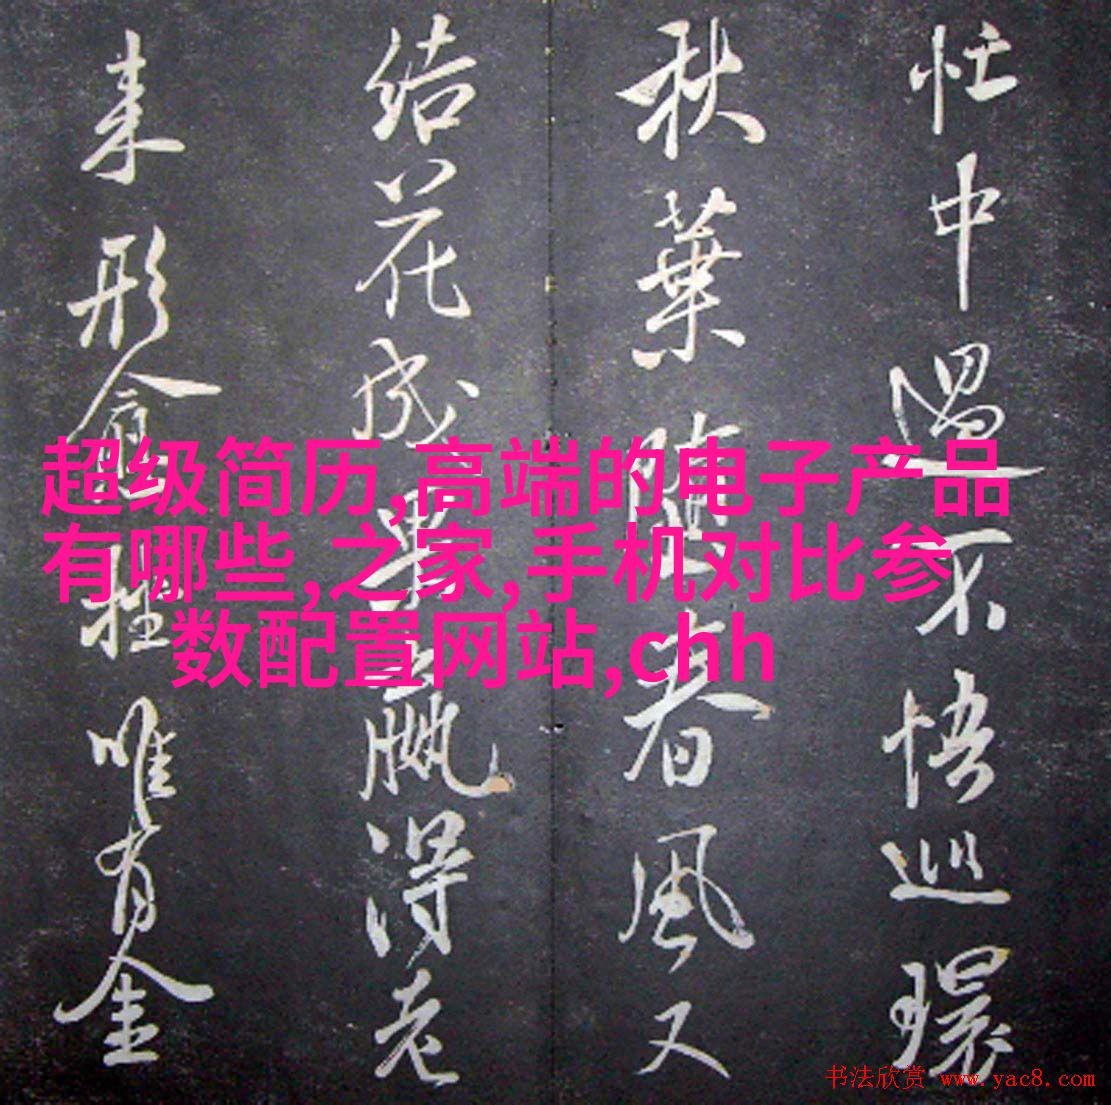 忙中過不悟巡環
秋葉春風又
結花成果贏得老
来形唯有金
超级简历,高端的电子产品
有哪些,之家,手机对比参
数配置网站,chh
书法欣赏 www.yac8.com